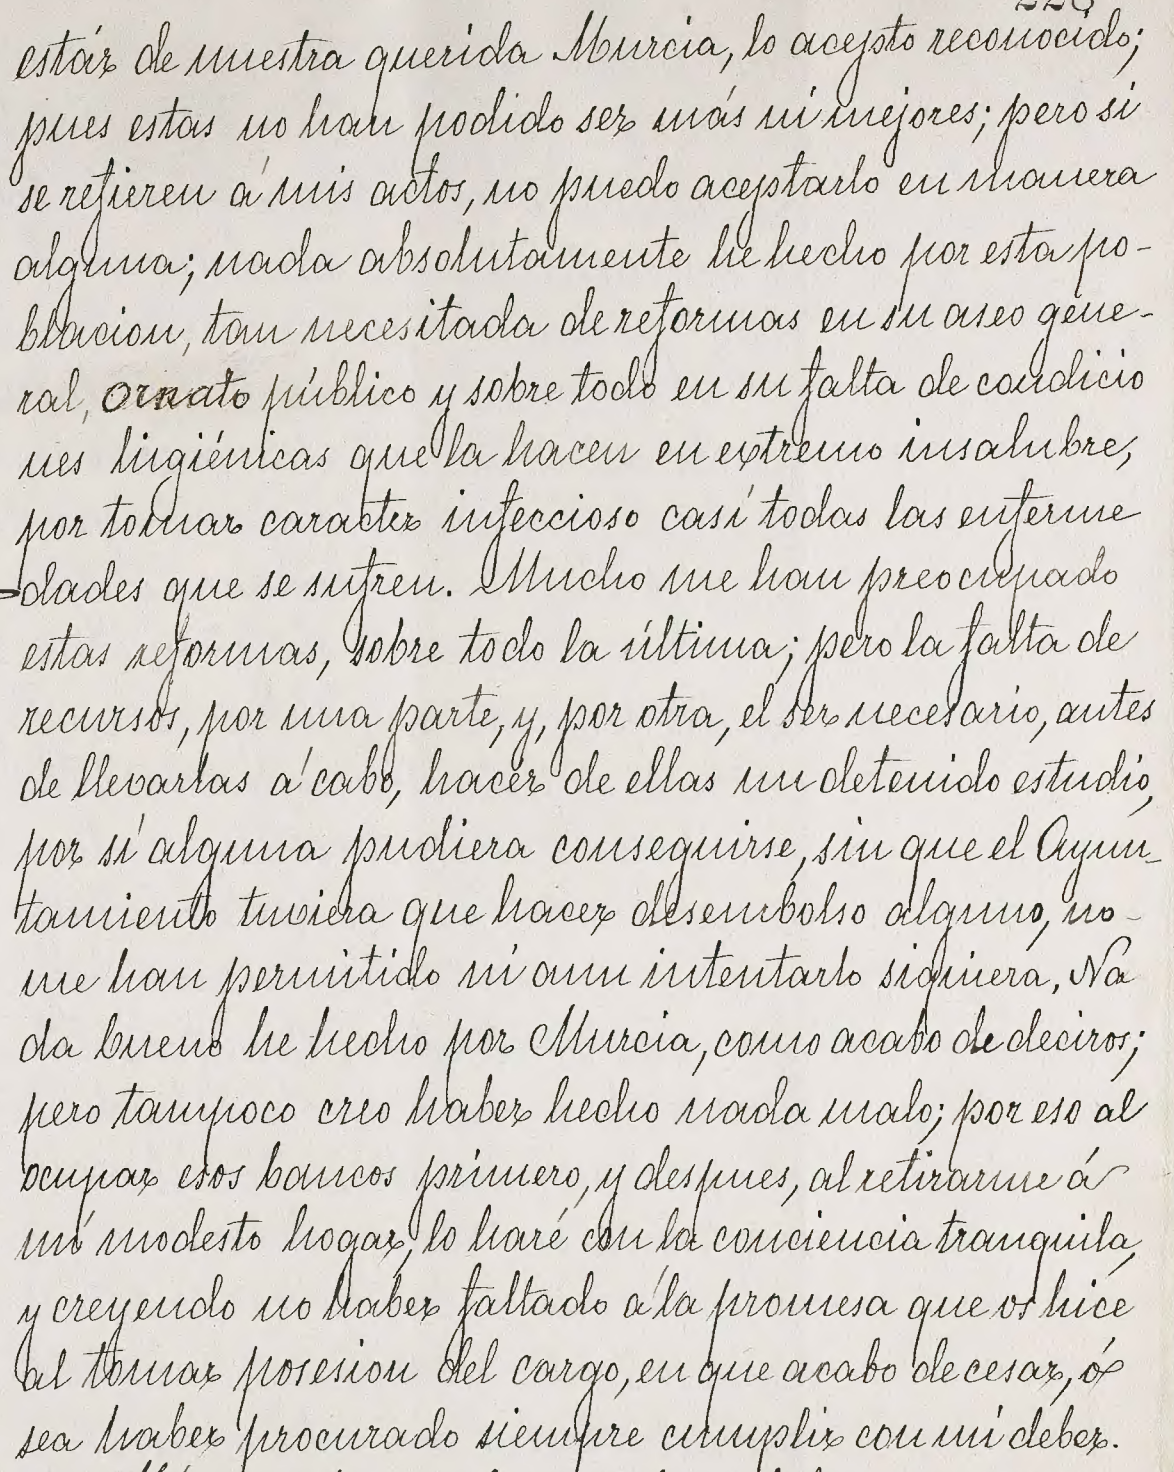 estár de nuestra querida Murcia, lo acepto reconocido;
pues estas no han podido ser más ni mejores; pero si
se refieren á mis actos, no puedo aceptarlo en manera
alguna; nada absolutamente he hecho por esta po-
blacion, tan necesitada de reformas en su aseo gene-
ral, ornato público y sobre todo en su falta de condicio
nes higiénicas que la hacen en extremo insalubre,
por tomar caracter infeccioso casí todas las enferme
-dades que se sufren. Mucho me han preocupado
estas reformas, sobre todo la última; pero la falta de
recursos, por una parte, y, por otra, el ser necesario, antes
de llevarlas á cabo, hacer de ellas un detenido estudio,
por sí alguna pudiera conseguirse, sin que el Ayun-
tamiento tuviera que hacer desembolso alguno, no-
me han permitido ni aun intentarlo siquiera, Na
da bueno he hecho por Murcia, como acabo de deciros;
pero tampoco creo haber hecho nada malo; por eso al
ocupar esos bancos primero, y despues, al retirarme á
mi modesto hogar, lo haré con la conciencia tranquila,
y creyendo no haber faltado á la promesa que os hice
al tomar posesion del cargo, en que acabo de cesar, ó
sea haber procurado siempre cumplir con mi deber.